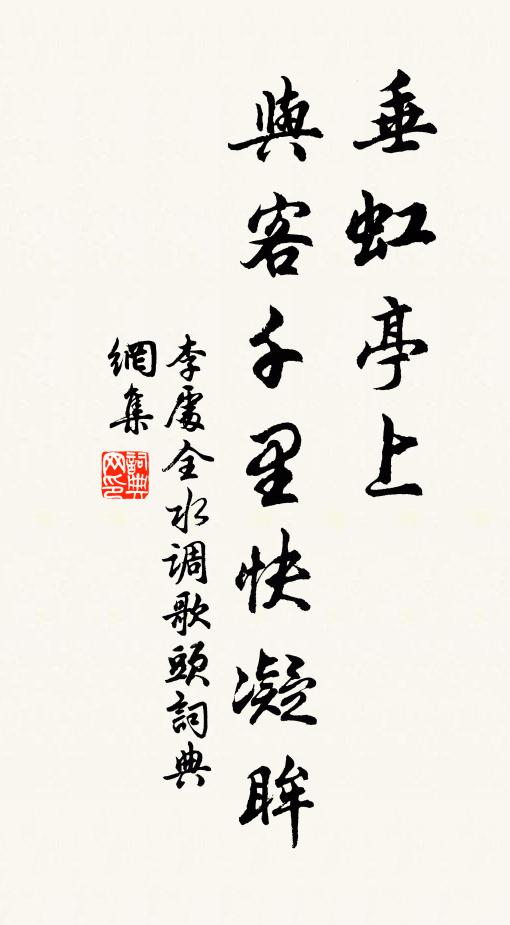 垂虹亭上
與客千里快凝眸
李處全水调歌頭詞典
網集
詞典
网印